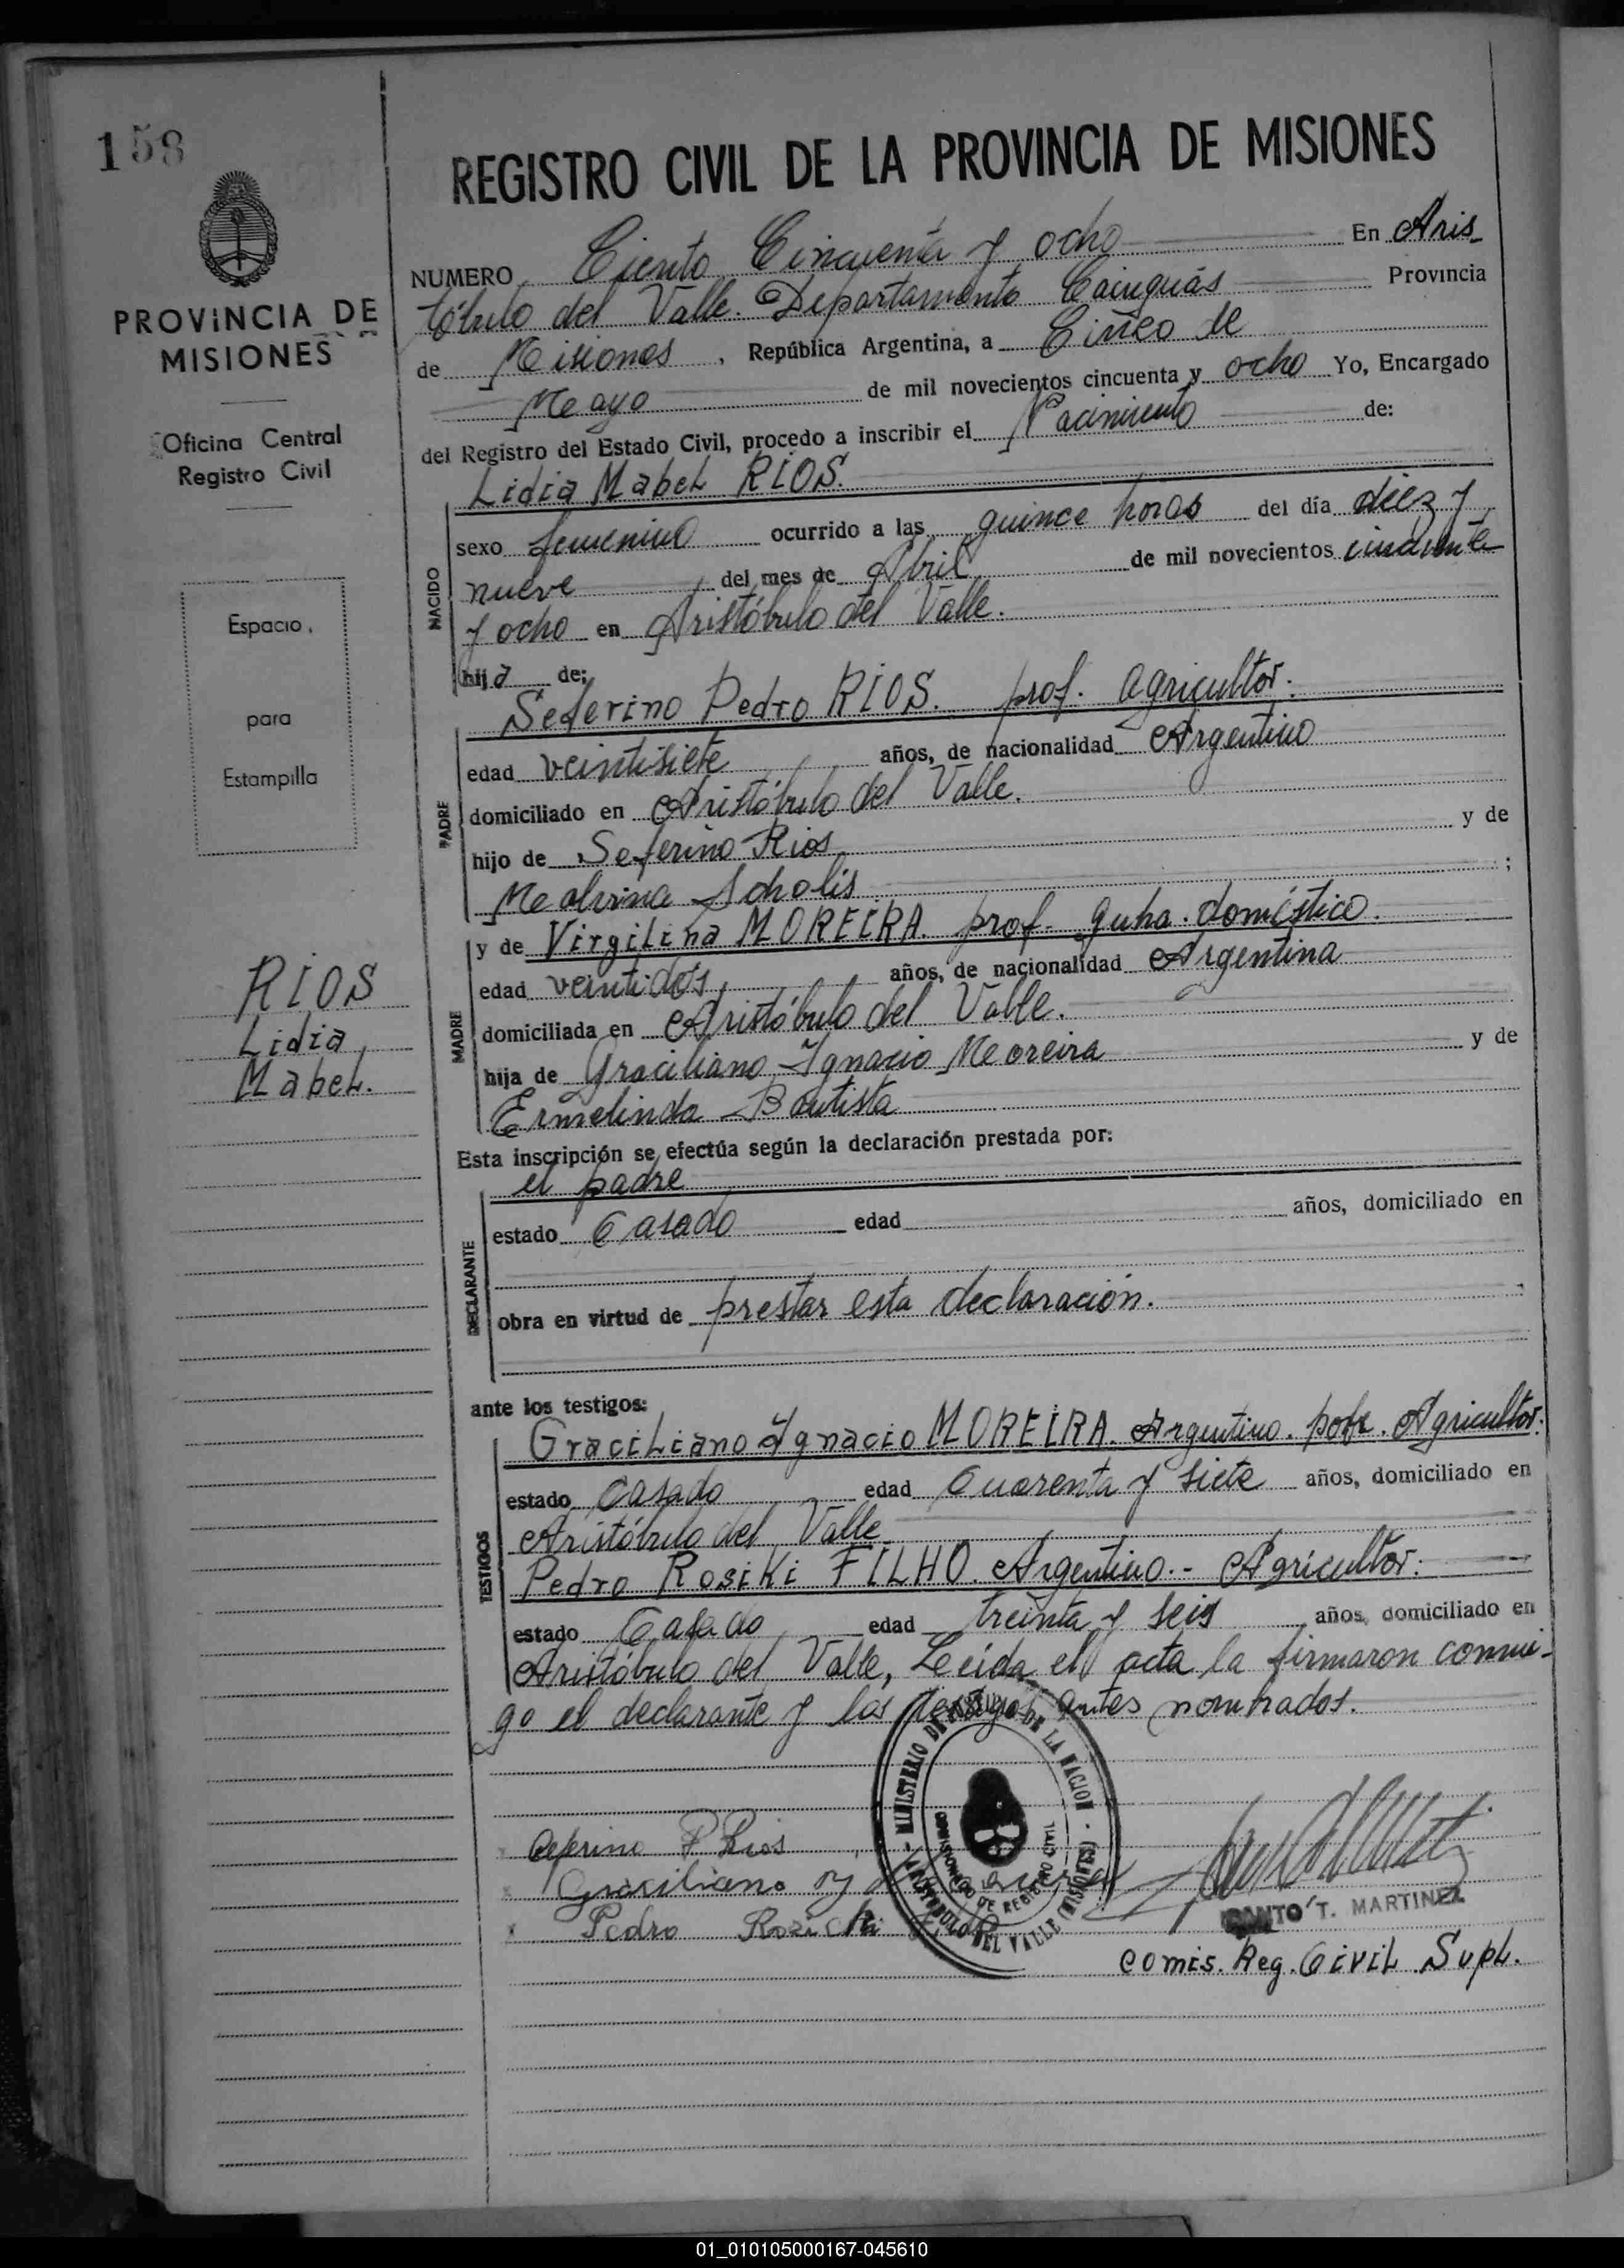 158
PROVINCIA DE
MISIONES
Oficina Central
Registro Civil
Espacio
para
Estampilla
RIOS
Lidia
Mabel.
REGISTRO CIVIL DE LA PROVINCIA DE MISIONES
NUMERO Ciento Cincuenta y ocho En Aris_
tóbulo del Valle. Departamento Cainguás Provincia
de Misiones, República Argentina, a Cinco de
Mayo de mil novecientos cincuenta y ocho Yo, Encargado
del Registro del Estado Civil, procedo a inscribir el Nacimiento de:
Lidia Mabel RIOS.
NACIDO
sexo femenino ocurrido a las quince horas del día diez y
nueve del mes de Abril de mil novecientos cincuenta
y ocho en Aristóbulo del Valle.
hija de:
Seferino Pedro RIOS. prof. agricultor.
PADRE
edad veintisiete años, de nacionalidad Argentino
domiciliado en Aristóbulo del Valle.
hijo de Seferino Rios y de
Malvina Scholis ;
y de Virgilina MOREIRA. prof. doméstico.
MADRE
edad veintidos años, de nacionalidad Argentina
domiciliada en Aristóbulo del Valle.
hija de Graciliano Ignacio Moreira y de
Ermelinda Bautista
Esta inscripción se efectúa según la declaración prestada por:
el padre
DECLARANTE
estado Casado edad años, domiciliado en
obra en virtud de prestar esta declaración.
ante los testigos:
Graciliano Ignacio MOREIRA. Argentino. Agricultor.
TESTIGOS
estado casado edad Cuarenta y siete años, domiciliado en
Aristóbulo del Valle
Pedro Rosiki FILHO. Argentino.- Agricultor.
estado Casado edad treinta y seis años, domiciliado en
Aristóbulo del Valle, Leida el acta la firmaron conmi-
go el declarante y los testigos antes nombrados.
MINISTERIO DE LA NACION
ARISTOBULO DEL VALLE (MISIONES)
DE REGISTRO CIVIL
Ceferino P Rios
Graciliano
Pedro
T. MARTINEZ
comis. Reg. Civil Supl.
01_010105000167-045610